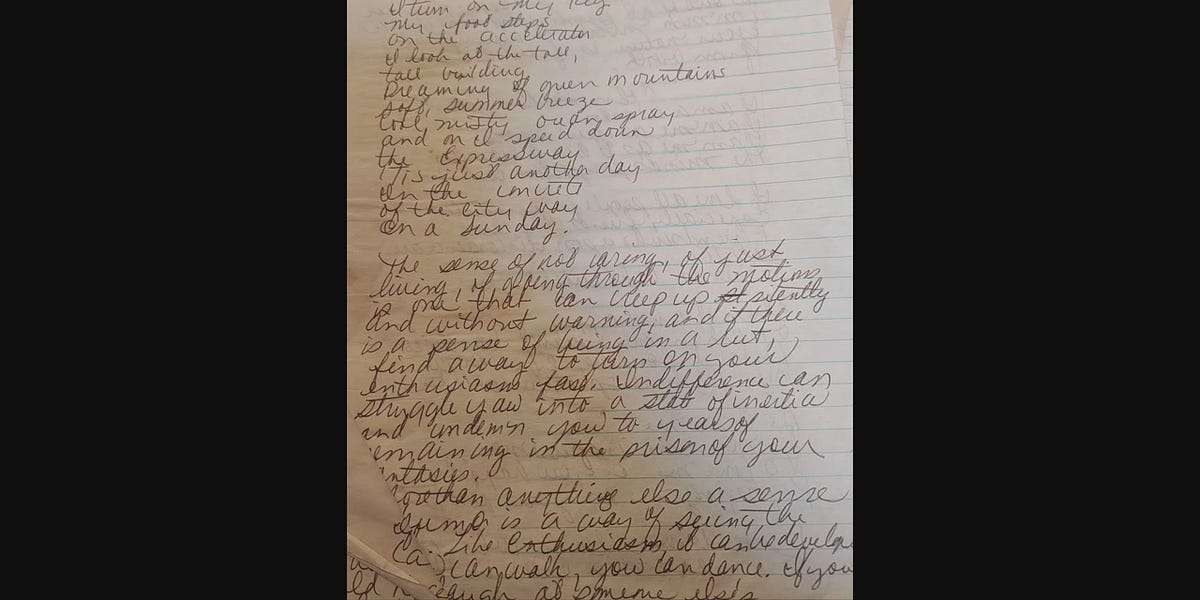 I turn on my key
My foot steps
on the accelerator
I look at the tall,
tall building
Dreaming of green mountains
soft, summer breeze
Cool, misty ocean spray
and on I speed down
the Expressway
'Tis just another day
On the concrete
of the city way
On a Sunday.
The sense of not caring, of just
living, of going through the motions
is one that can creep up silently
and without warning, and if there
is a sense of being in a rut,
find a way to turn on your
enthusiasm fast. Indifference can
struggle you into a state of inertia
and condemn you to years of
remaining in the prison of your
ntasies.
than anything else a sense
humor is a way of seeing the
Like Enthusiasm, it can be develope
can walk, you can dance. If you
laugh at someone else's